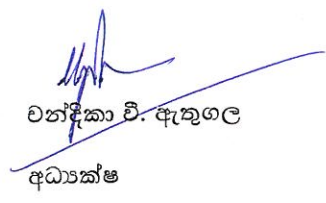 චන්දිකා වී. ඇතුගල
අධ්‍යක්ෂ